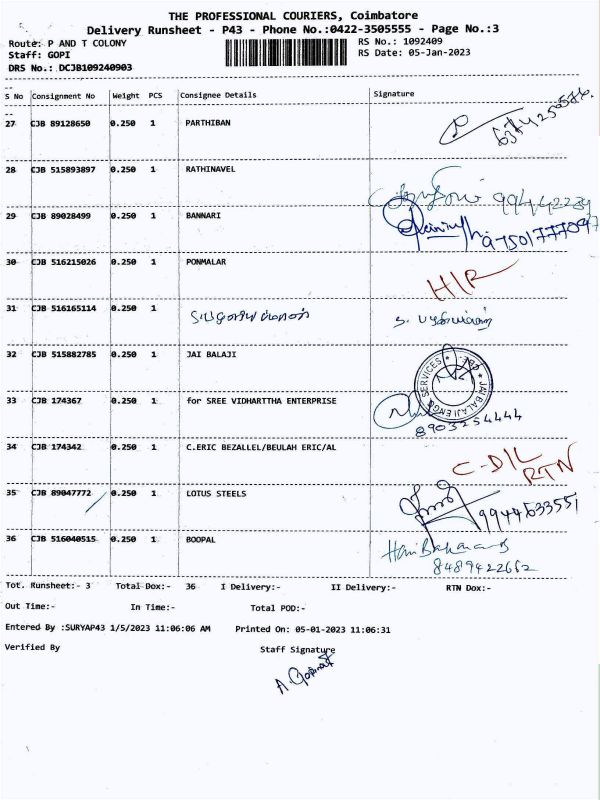 THE PROFESSIONAL COURIERS, Coimbatore
Delivery Runsheet - P43 - Phone No.:0422-3505555 - Page No.:3
Route: P AND T COLONY
RS No.: 1092409
Staff: GOPI
RS Date: 05-Jan-2023
DRS No.: DCJB109240903
S No Consignment No Weight PCS Consignee Details Signature
27 CJB 89128650 0.250 1 PARTHIBAN
28 CJB 515893897 0.250 1 RATHINAVEL
29 CJB 89028499 0.250 1 BANNARI
9750177709
30 CJB 516215026 0.250 1 PONMALAR
H/R
31 CJB 516165114 0.250 1
32 CJB 515882785 0.250 1 JAI BALAJI
JAI BALAJI ENGG SERVICES
33 CJB 174367 0.250 1 for SREE VIDHARTTHA ENTERPRISE
8903254444
34 CJB 174342 0.250 1 C.ERIC BEZALLEL/BEULAH ERIC/AL
C-D/L
RTN
35 CJB 89047772 0.250 1 LOTUS STEELS
9944633551
36 CJB 516040515 0.250 1 BOOPAL
8489422662
Tot. Runsheet:- 3 Total Dox:- 36 I Delivery:- II Delivery:- RTN Dox:-
Out Time:- In Time:- Total POD:-
Entered By :SURYAP43 1/5/2023 11:06:06 AM Printed On: 05-01-2023 11:06:31
Verified By Staff Signature
A. Gopinath